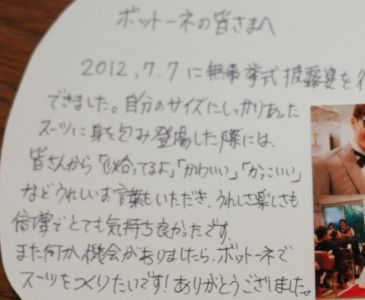 ボットーネの皆さまへ
2012.7.7に無事挙式披露宴を行
できました。自分のサイズにしっかりあった
スーツに身を包み登場した際には、
皆さんから「似合ってるよ」「かわいい」「かっこいい」
などうれしいお言葉もいただき、うれしさ楽しさも
倍増でとても気持ち良かったです。
また何か機会がありましたら、ボットーネで
スーツをつくりたいです!ありがとうございました。